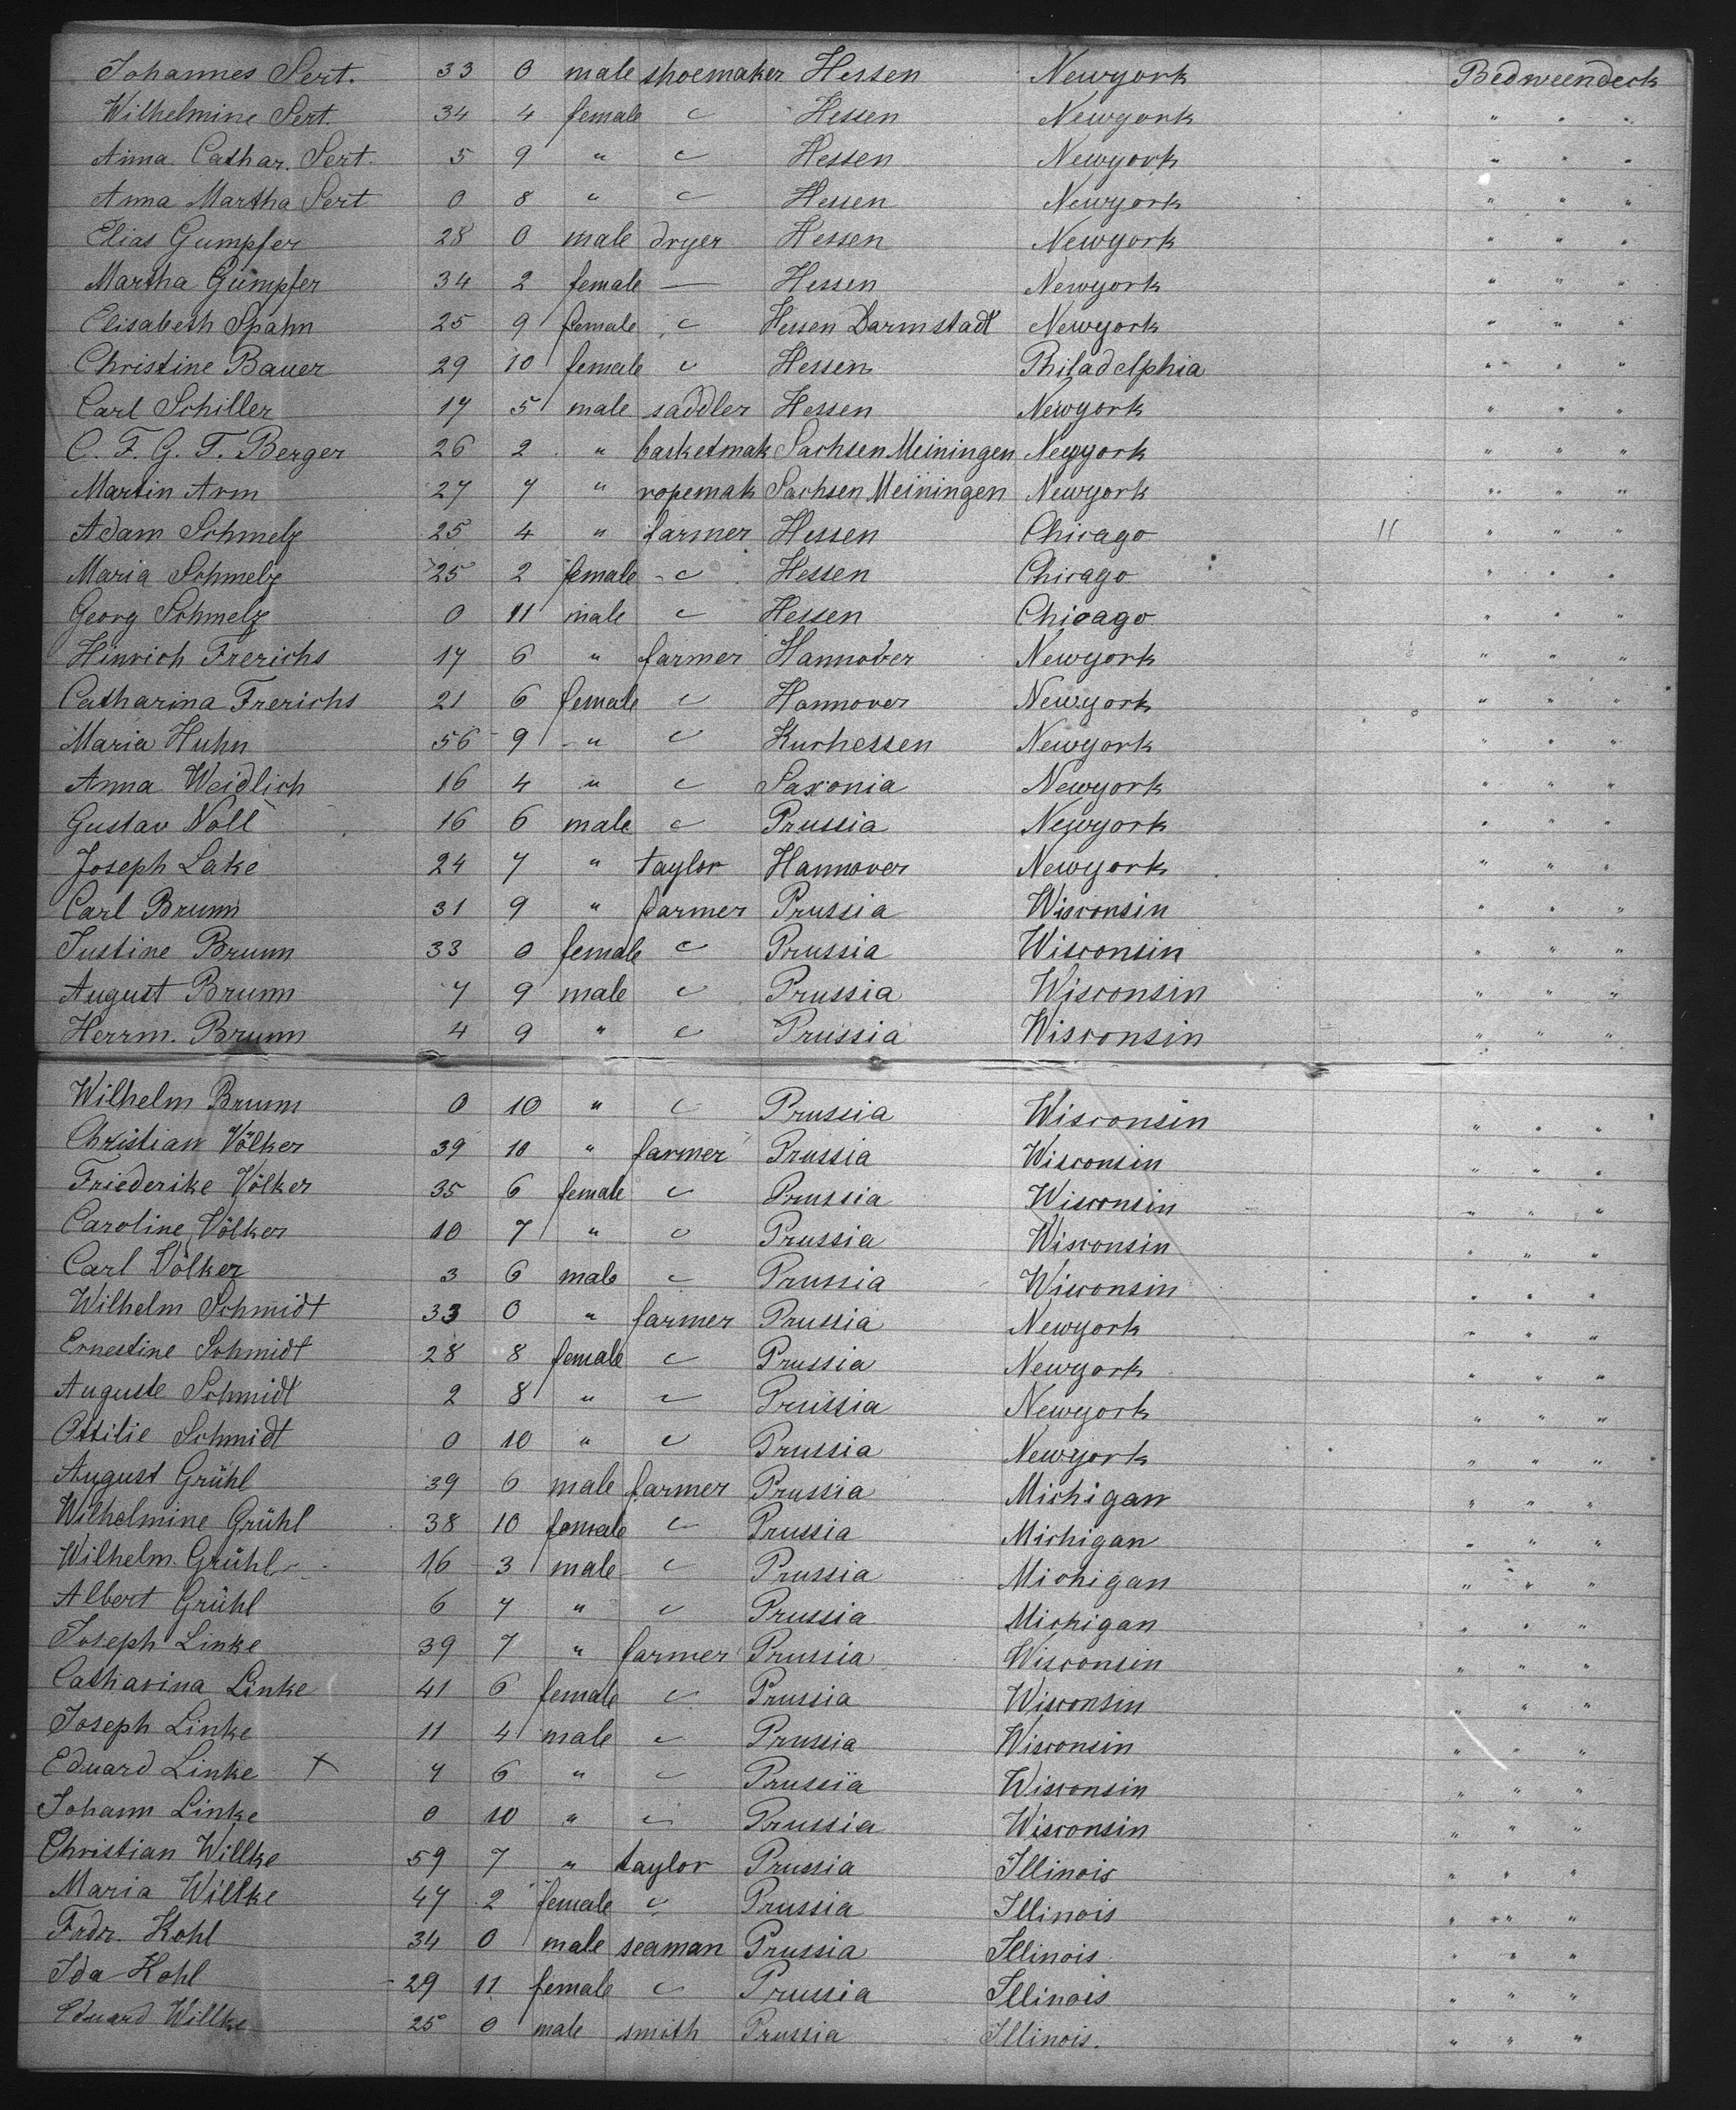 Johannes Sert. 33 0 male shoemaker Hessen Newyork Bedweendeck
Wilhelmine Sert. 34 4 female " Hessen Newyork " " "
Anna Cathar. Sert. 5 9 " " Hessen Newyork " " "
Anna Martha Sert 0 8 " " Hessen Newyork " " "
Elias Gumpfer 28 0 male dryer Hessen Newyork " " "
Martha Gumpfer 34 2 female — Hessen Newyork " " "
Elisabeth Spahn 25 9 female " Hessen Darmstadt Newyork " " "
Christine Bauer 29 10 female " Hessen Philadelphia " " "
Carl Schiller 17 5 male saddler Hessen Newyork " " "
C. F. G. T. Berger 26 2 " basketmak Sachsen Meiningen Newyork " " "
Martin Arm 27 7 " ropemak Sachsen Meiningen Newyork " " "
Adam Schmelz 25 4 " farmer Hessen Chicago 11 " " "
Maria Schmelz 25 2 female " Hessen Chicago " " "
Georg Schmelz 0 11 male " Hessen Chicago " " "
Hinrich Frerichs 17 6 " farmer Hannover Newyork " " "
Catharina Frerichs 21 6 female " Hannover Newyork " " "
Maria Huhn 56 9 " " Kurhessen Newyork " " "
Anna Weidlich 16 4 " " Saxonia Newyork " " "
Gustav Noll 16 6 male " Prussia Newyork " " "
Joseph Lake 24 7 " taylor Hannover Newyork " " "
Carl Brumm 31 9 " farmer Prussia Wisconsin " " "
Justine Brumm 33 0 female " Prussia Wisconsin " " "
August Brumm 7 9 male " Prussia Wisconsin " " "
Herrm. Brumm 4 9 " " Prussia Wisconsin " " "
Wilhelm Brumm 0 10 " " Prussia Wisconsin " " "
Christian Völker 39 10 " farmer Prussia Wisconsin " " "
Friederike Völker 35 6 female " Prussia Wisconsin " " "
Caroline Völker 10 7 " " Prussia Wisconsin " " "
Carl Völker 3 6 male " Prussia Wisconsin " " "
Wilhelm Schmidt 33 0 " farmer Prussia Newyork " " "
Ernestine Schmidt 28 8 female " Prussia Newyork " " "
Auguste Schmidt 2 8 " " Prussia Newyork " " "
Ottilie Schmidt 0 10 " " Prussia Newyork " " "
August Grühl 39 6 male farmer Prussia Michigan " " "
Wilhelmine Grühl 38 10 female " Prussia Michigan " " "
Wilhelm Grühl 16 3 male " Prussia Michigan " " "
Albert Grühl 6 7 " " Prussia Michigan " " "
Joseph Linke 39 7 " farmer Prussia Wisconsin " " "
Catharina Linke 41 6 female " Prussia Wisconsin " "
Joseph Linke 11 4 male " Prussia Wisconsin " " "
Eduard Linke X 7 6 " " Prussia Wisconsin " " "
Johann Linke 0 10 " " Prussia Wisconsin " " "
Christian Willke 59 7 " taylor Prussia Illinois " " "
Maria Willke 47 2 female " Prussia Illinois " " "
Frdr. Kohl 34 0 male seaman Prussia Illinois " " "
Ida Kohl 29 11 female " Prussia Illinois " " "
Eduard Willke 25 0 male smith Prussia Illinois. " " "